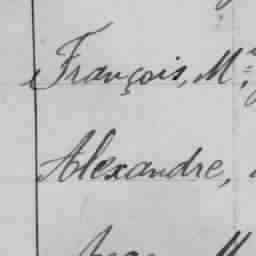 François, M
Alexandre,